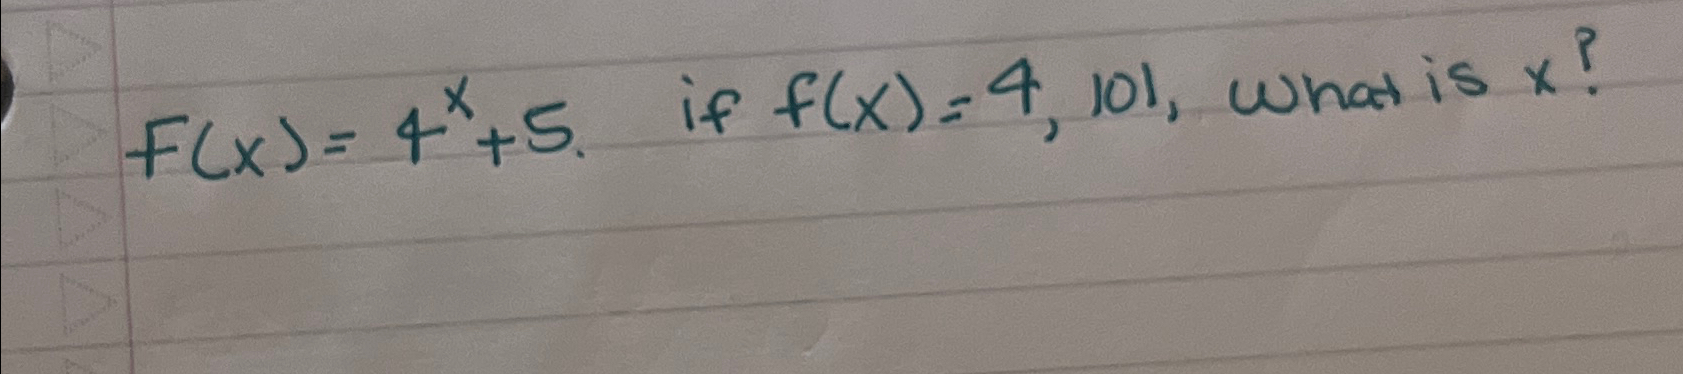 F(x) = 4^x + 5. if f(x) = 4,101, what is x?